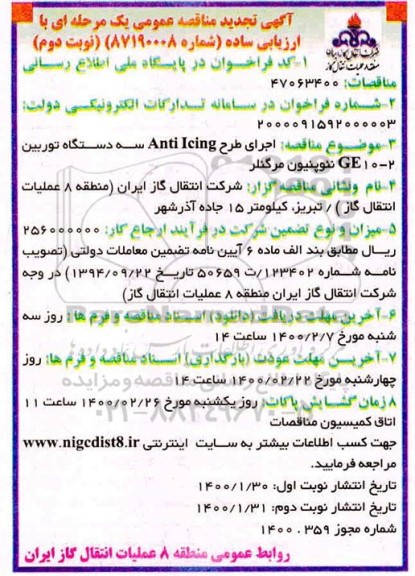 آگهی تجدید مناقصه عمومی یک مرحله ای با
ارزیابی ساده (شماره ۸۷۱۹۰۰۰۸) (نوبت دوم)
۱-کد فراخوان در پایگاه ملی اطلاع رسانی
مناقصات: ۴۷۰۶۳۴۰۰
۲-شماره فراخوان در سامانه تدارکات الکترونیکی دولت:
۲۰۰۰۰۹۱۵۹۲۰۰۰۰۰۳
۳-موضوع مناقصه: اجرای طرح Anti Icing سه دستگاه توربین
GE۱۰-۲ نئوپنیون مرگنلر
۴-نام ونشانی مناقصه گزار: شرکت انتقال گاز ایران (منطقه ۸ عملیات
انتقال گاز ) / تبریز، کیلومتر ۱۵ جاده آذرشهر
۵-میزان و نوع تضمین شرکت در فرآیند ارجاع کار: ۲۵۶۰۰۰۰۰۰
ریال مطابق بند الف ماده ۶ آیین نامه تضمین معاملات دولتی (تصویب
نامه شماره ۱۲۳۴۰۲/ت ۵۰۶۵۹ تاریخ ۱۳۹۴/۰۹/۲۲) در وجه
شرکت انتقال گاز ایران منطقه ۸ عملیات انتقال گاز)
۶-آخرین مهلت دریافت (دانلود) اسناد مناقصه و فرم ها: روز سه
شنبه مورخ ۱۴۰۰/۲/۷ ساعت ۱۴
۷-آخرین مهلت عودت (بارگذاری) اسناد مناقصه و فرم ها: روز
چهارشنبه مورخ ۱۴۰۰/۰۲/۲۲ ساعت ۱۴
۸ زمان گشایش پاکات: روز یکشنبه مورخ ۱۴۰۰/۰۲/۲۶ ساعت ۱۱
اتاق کمیسیون مناقصات
جهت کسب اطلاعات بیشتر به سایت اینترنتی www.nigcdist8.ir
مراجعه فرمایید.
تاریخ انتشار نوبت اول: ۱۴۰۰/۱/۳۰
تاریخ انتشار نوبت دوم: ۱۴۰۰/۱/۳۱
شماره مجوز ۳۵۹ . ۱۴۰۰
روابط عمومی منطقه ۸ عملیات انتقال گاز ایران